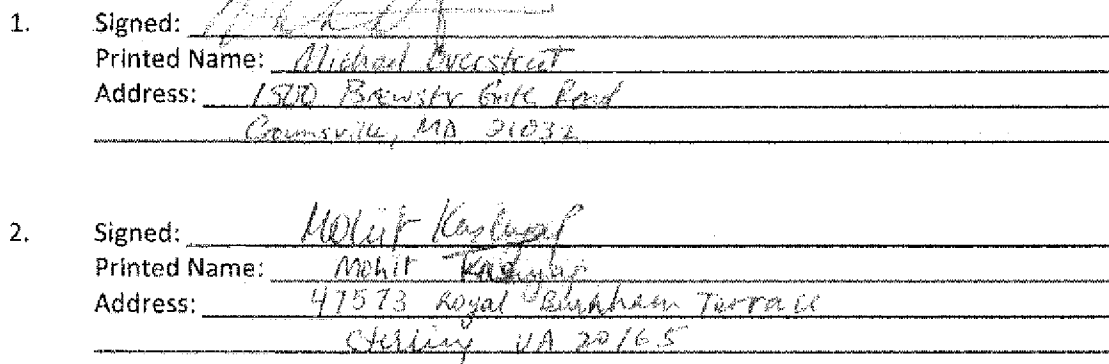 1. Signed:
Printed Name: Michael Overstreet
Address: 1500 Brewster Gate Road
Crownsville, MD 21032
2. Signed: Mohit Kashyap
Printed Name: Mohit Kashyap
Address: 47573 Royal Burnham Terrace
Sterling VA 20165